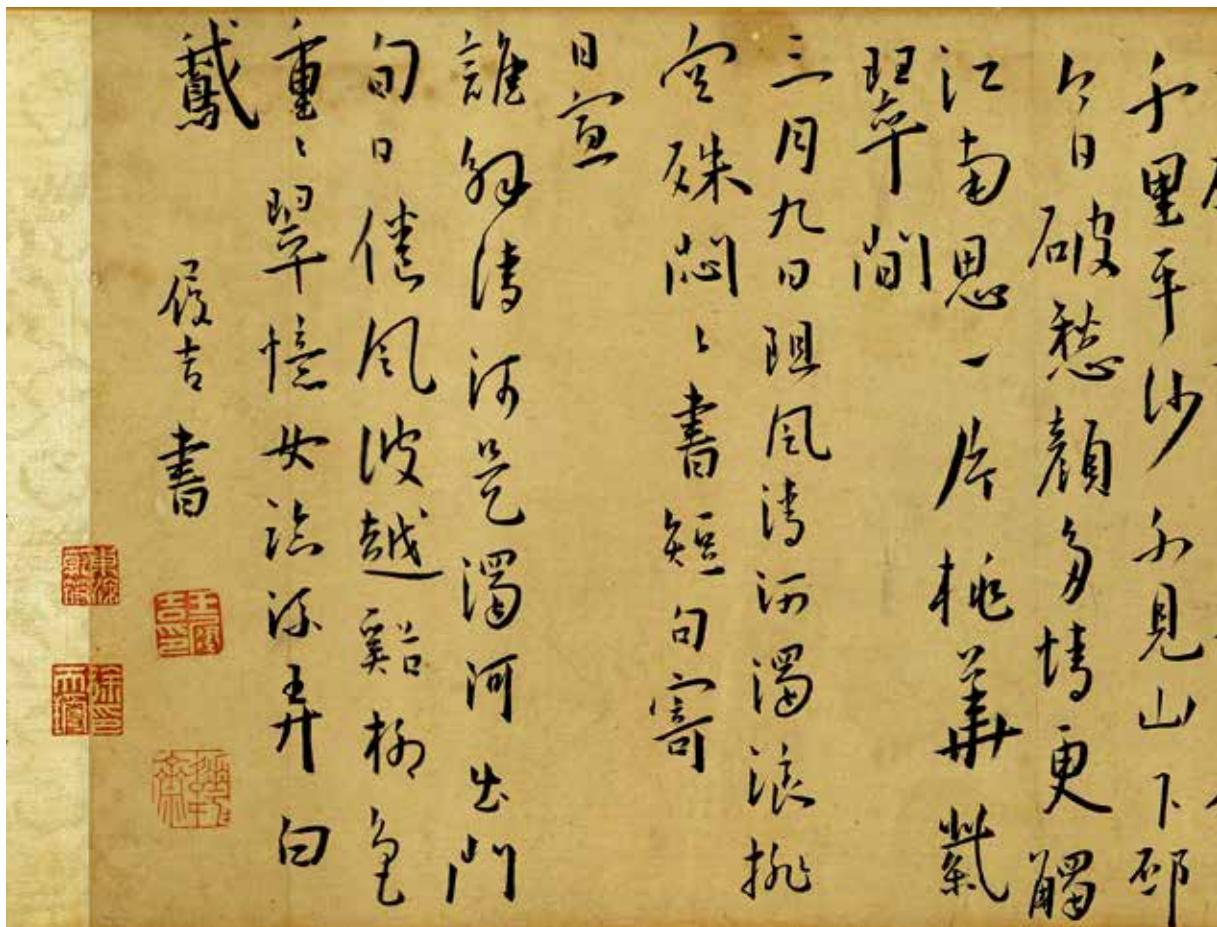 千里平沙不見山下邳
今日破愁顏多情更觸
江南思一片桃華紫
翠間
三月九日阻風清河濁浪排
空殊悶〻書短句寄
日宣
誰解清河是濁河出門
旬日倦風波越谿柳色
重〻翠憶女臨流弄白
鵞
履吉書
王履吉印